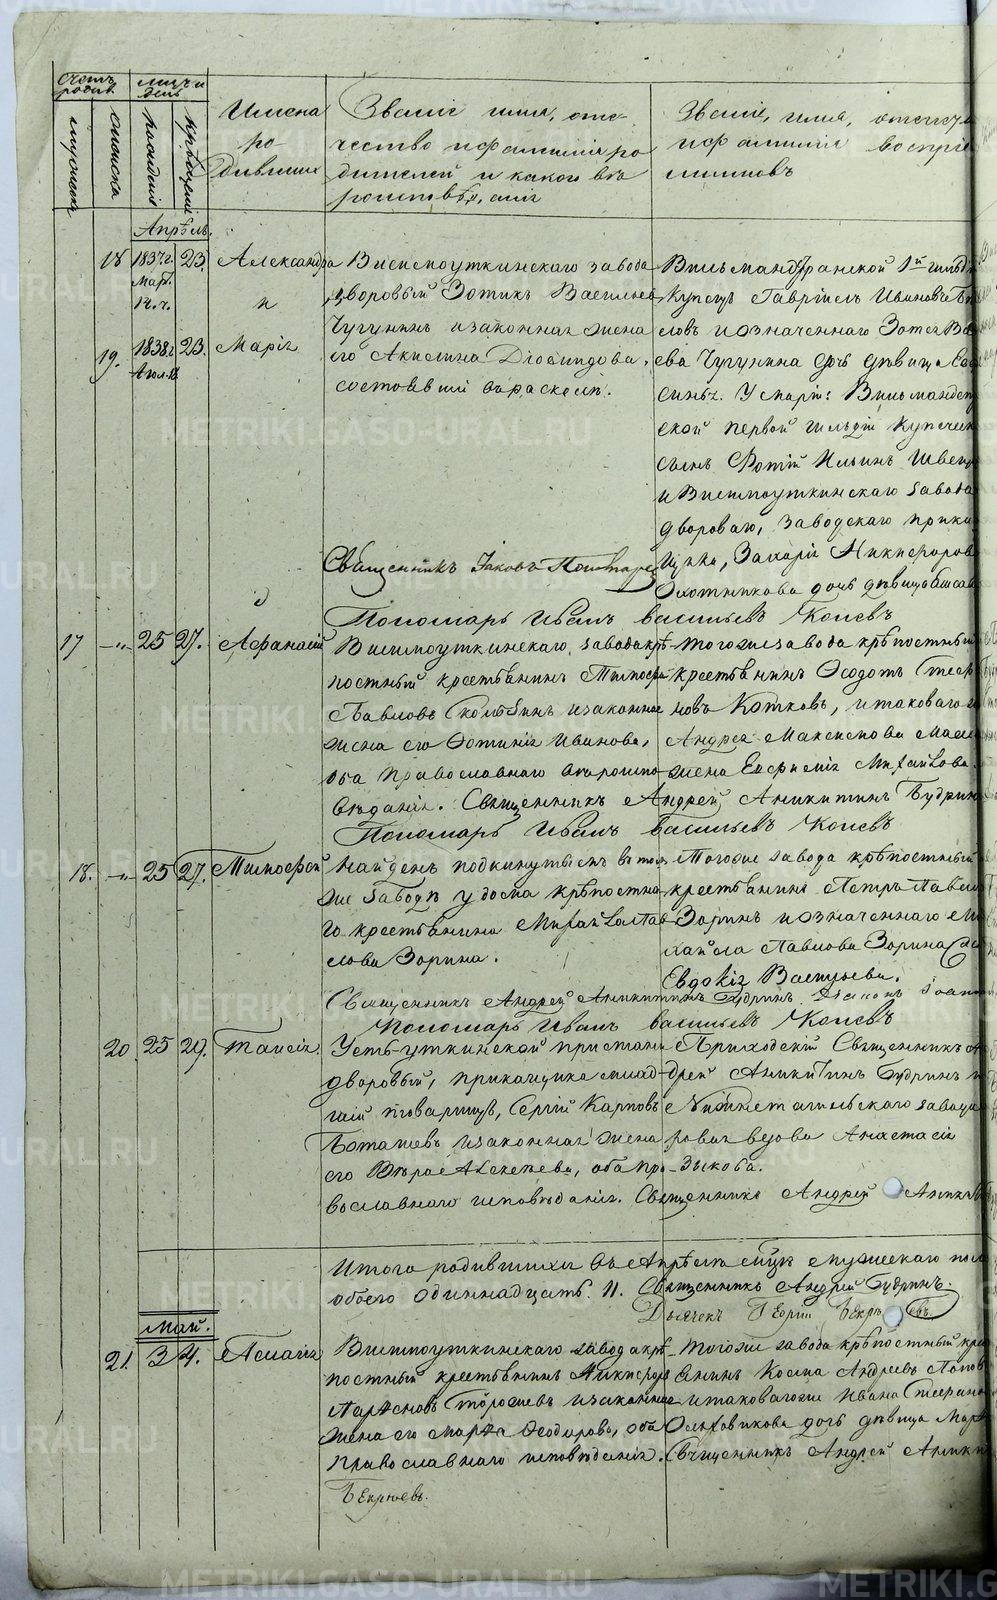 Счетъ родив. Мѣсяцъ и день
мужеска женска рожденія крещенія
Имена родившихся
Званіе имя, отечество и фамилія родителей и какого вѣроисповѣданія
Званіе, имя, отечест и фамилія воспріемниковъ
Апрѣль.
18 1837г. Март. 14.ч. 23. Александра и
19. 1838.г. 23. Марія
Висимоуткинскаго завода
дворовый Зотикъ Васильевъ
Чугунинъ и законная жена
его Акилина Діомидова,
состоявшіи въ расколѣ.
Вильмандстранской 1й гильдіи
купецъ Гавріилъ Ивановъ
словъ и означеннаго Зотея Ва
ева Чугунина дочь дѣвица
У Маріи: Вильмандст
ской первой гильдіи купечес
сынъ Фотій Ильинъ Швец
и Висимоуткинскаго завода
двороваго, заводскаго прика
щика, Захарія Никифорова
Охотникова дочь дѣвица
Священникъ Іаковъ
Пономарь Иванъ Васильевъ Копевъ
17 -„- 25 27. Афанасій
Висимоуткинскаго завода крѣ-
постный крестьянинъ Тимофей
Павловъ и законная
жена его Фотинія Иванова,
оба православнаго вѣроиспо-
вѣданія. Священникъ Андрей Аникитинъ Будрин
тогоже завода крѣпостный
крестьянинъ Ѳеодотъ
новъ Котковъ, и таковаго
Андрея Максимова
жена Евфимія Михайлова.
Пономарь Иванъ Васильевъ Копевъ
18. -„- 25 27. Тимофей
Найденъ подкинутымъ въ томъ
же заводѣ у дома крѣпостна-
го крестьянина Михаила Пав-
лова Зорина.
Тогоже завода крѣпостный
крестьянинъ Петръ Павло
Зоринъ и означеннаго Ми
хаила Павлова Зорина
Евдокія Васильева.
Священникъ Андрей Аникитинъ Будринъ. Діаконъ Іоанн
Пономарь Иванъ Васильевъ Копевъ
20. 25 29. Таисія.
Усть-уткинской пристани
дворовый, прикащика млад-
шій товарищъ, Сергій Карповъ
Боташевъ и законная жена
его Вѣра Алексѣева, оба пра-
вославнаго исповѣданія. Священникъ Андрей Аникит
Приходскій Священникъ Ан
дрей Аникитинъ Будринъ и
Нижнетагильскаго завода
вдова Анастасія
Зыкова.
Итого родившихся въ Апрѣлѣ м̃цѣ мужескаго пола
обоего одиннадцать. 11. Священникъ Андрей Будринъ.
Дьячекъ Георгій
Май.
21. 3 4. Пелагія
Висимоуткинскаго завода крѣ-
постный крестьянинъ Никифоръ
Парѳеновъ и законная
жена его Марѳа Ѳеодорова, оба
православнаго исповѣданія. Священникъ Андрей Аники
тогоже завода крѣпостный кре
янинъ Косма Андреевъ Попов
и таковагоже Ивана
Ольховикова дочь дѣвица Мар
Бекрѣевъ.
METRIKI.GASO-URAL.RU